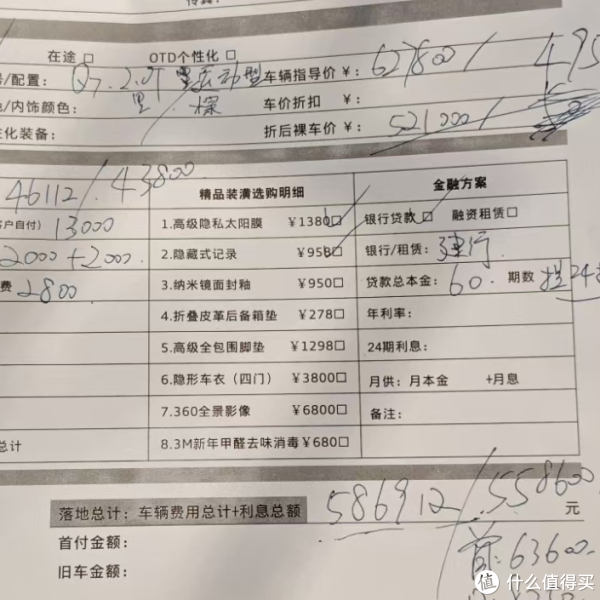 在途 □ OTD个性化 □
号/配置: Q7. 2.0T 型 车辆指导价 ¥: 627800 / 495
/内饰颜色: 黑/棕 车价折扣 ¥:
性化装备: 折后裸车价 ¥: 521000 /
46112 / 43800
精品装潢选购明细 金融方案
客户自付) 13000 1.高级隐私太阳膜 ¥1380□ 银行贷款 □ 融资租赁 □
2000+2000 2.隐藏式记录 ¥958□ 银行/租赁: 建行
费 2800. 3.纳米镜面封釉 ¥950□ 贷款总本金: 60. 期数 24
4.折叠皮革后备箱垫 ¥278□ 年利率:
5.高级全包围脚垫 ¥1298□ 24期利息:
6.隐形车衣（四门） ¥3800□ 月供: 月本金 +月息
7.360全景影像 ¥6800□ 备注:
总计 8.3M新年甲醛去味消毒 ¥680□
落地总计: 车辆费用总计+利息总额 586912 / 558600 元
首付金额: 首: 63600.
旧车金额:
值 什么值得买